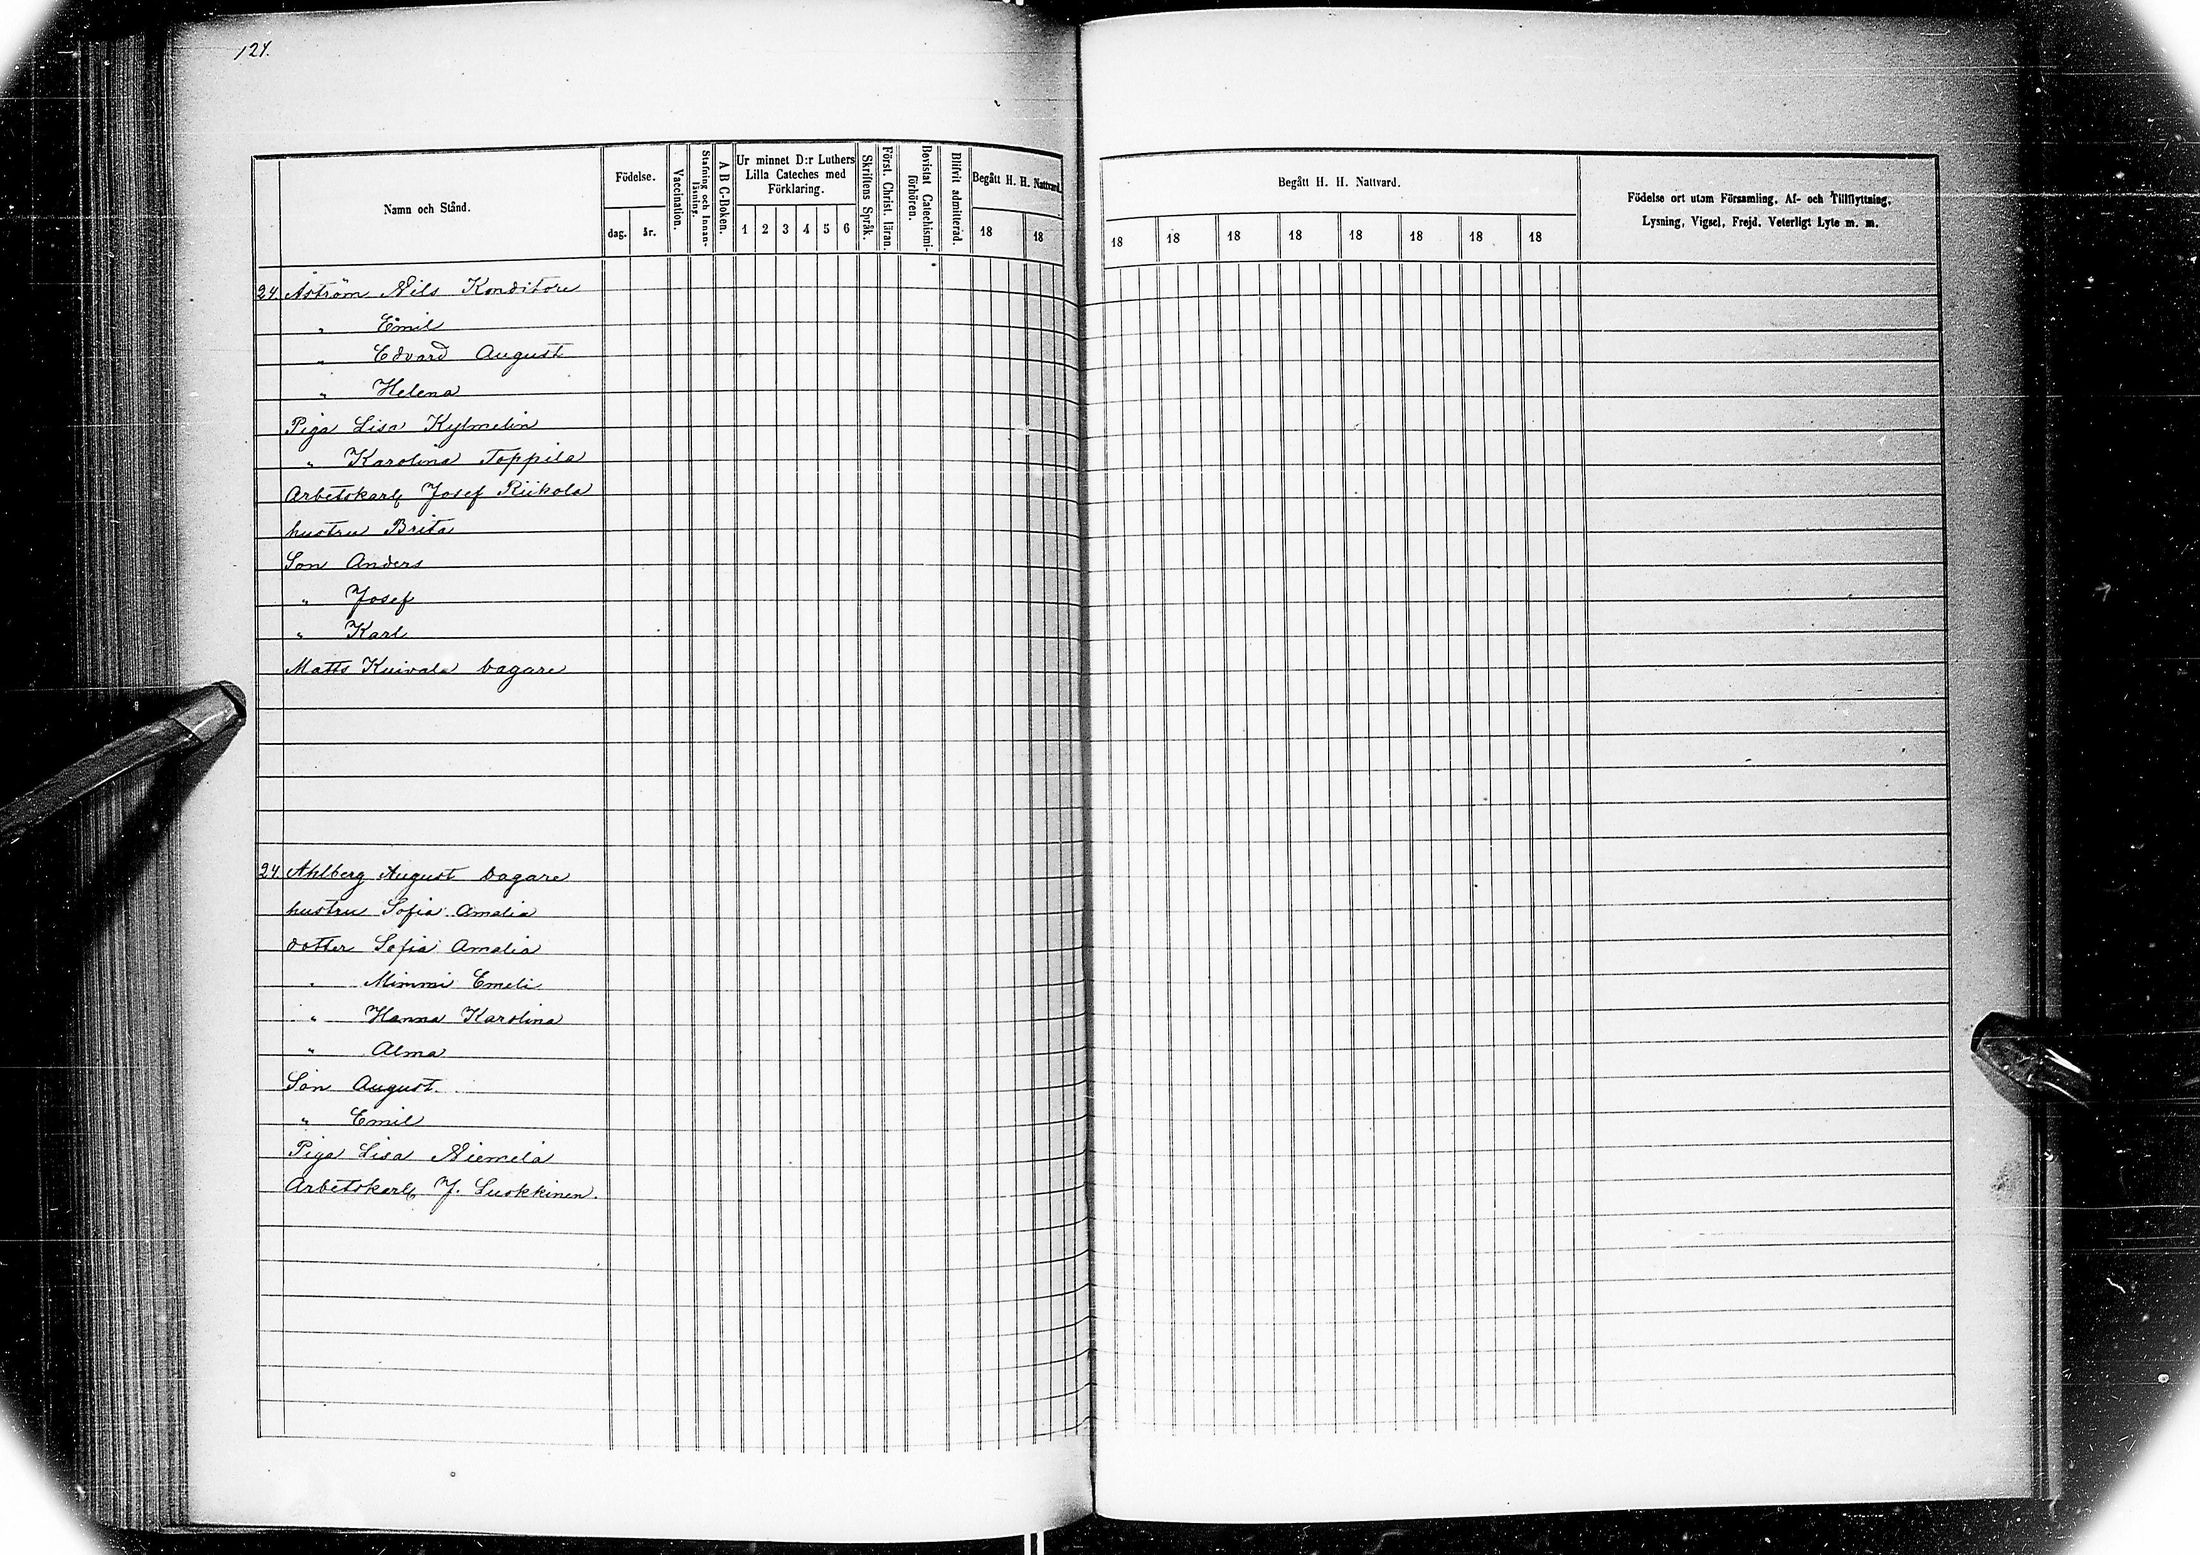 124.
Namn och Stånd.
Födelse.
dag.
år.
Vaccination.
Stafning och Innan-
läsning.
A B C-Boken.
Ur minnet D:r Luthers
Lilla Cateches med
Förklaring.
1 2 3 4 5 6
Skriftens Språk.
Först. Christ. läran.
Bevistat Catechismi-
förhören.
Blifvit admitterad.
Begått H. H. Nattvard.
18 18
Begått H. H. Nattvard.
18 18 18 18 18 18 18 18
Födelse ort utom Församling, Af- och Tillflyttning,
Lysning, Vigsel, Frejd, Veterligt Lyte m. m.
24 Åström Nils Konditore
" Emil
" Edvard August
" Helena
Piga Lisa Kylmelin
" Karolina Toppila
Arbetskarl Josef Riikola
hustru Brita
Son Anders
" Josef
" Karl
Matts Kuivala bagare
24 Ahlberg August bagare
hustru Sofia Amalia
dotter Sofia Amalia
" Mimmi Emeli
" Hanna Karolina
" Alma
Son August
" Emil
Piga Lisa Niemelä
Arbetskarl J. Luokkinen.